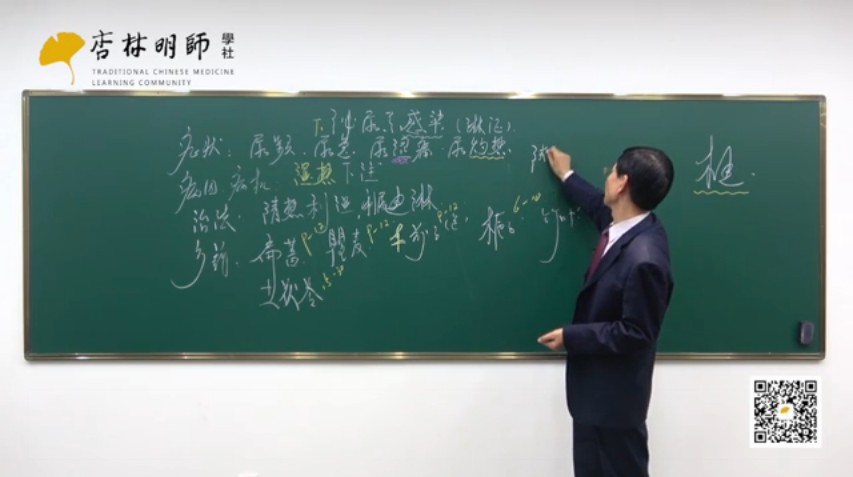 杏林明師
學社
TRADITIONAL CHINESE MEDICINE
LEARNING COMMUNITY
下 泌尿系感染(淋证)
症状:尿频、尿急、尿涩痛、尿灼热
病因病机 湿热下注
治法:清热利湿,利尿通淋
方药:萹蓄 9-12 瞿麦 9-12 车前子 9-12 (包) 栀子 6-10
土茯苓